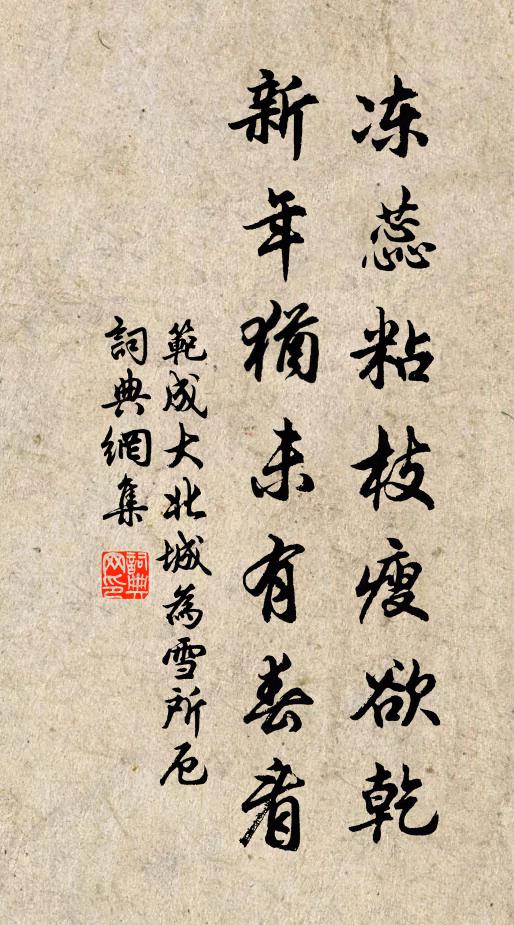 冻蕊粘枝瘦欲乾
新年犹未有春看
範成大北城為雪所厄
詞典網集
詞典网印